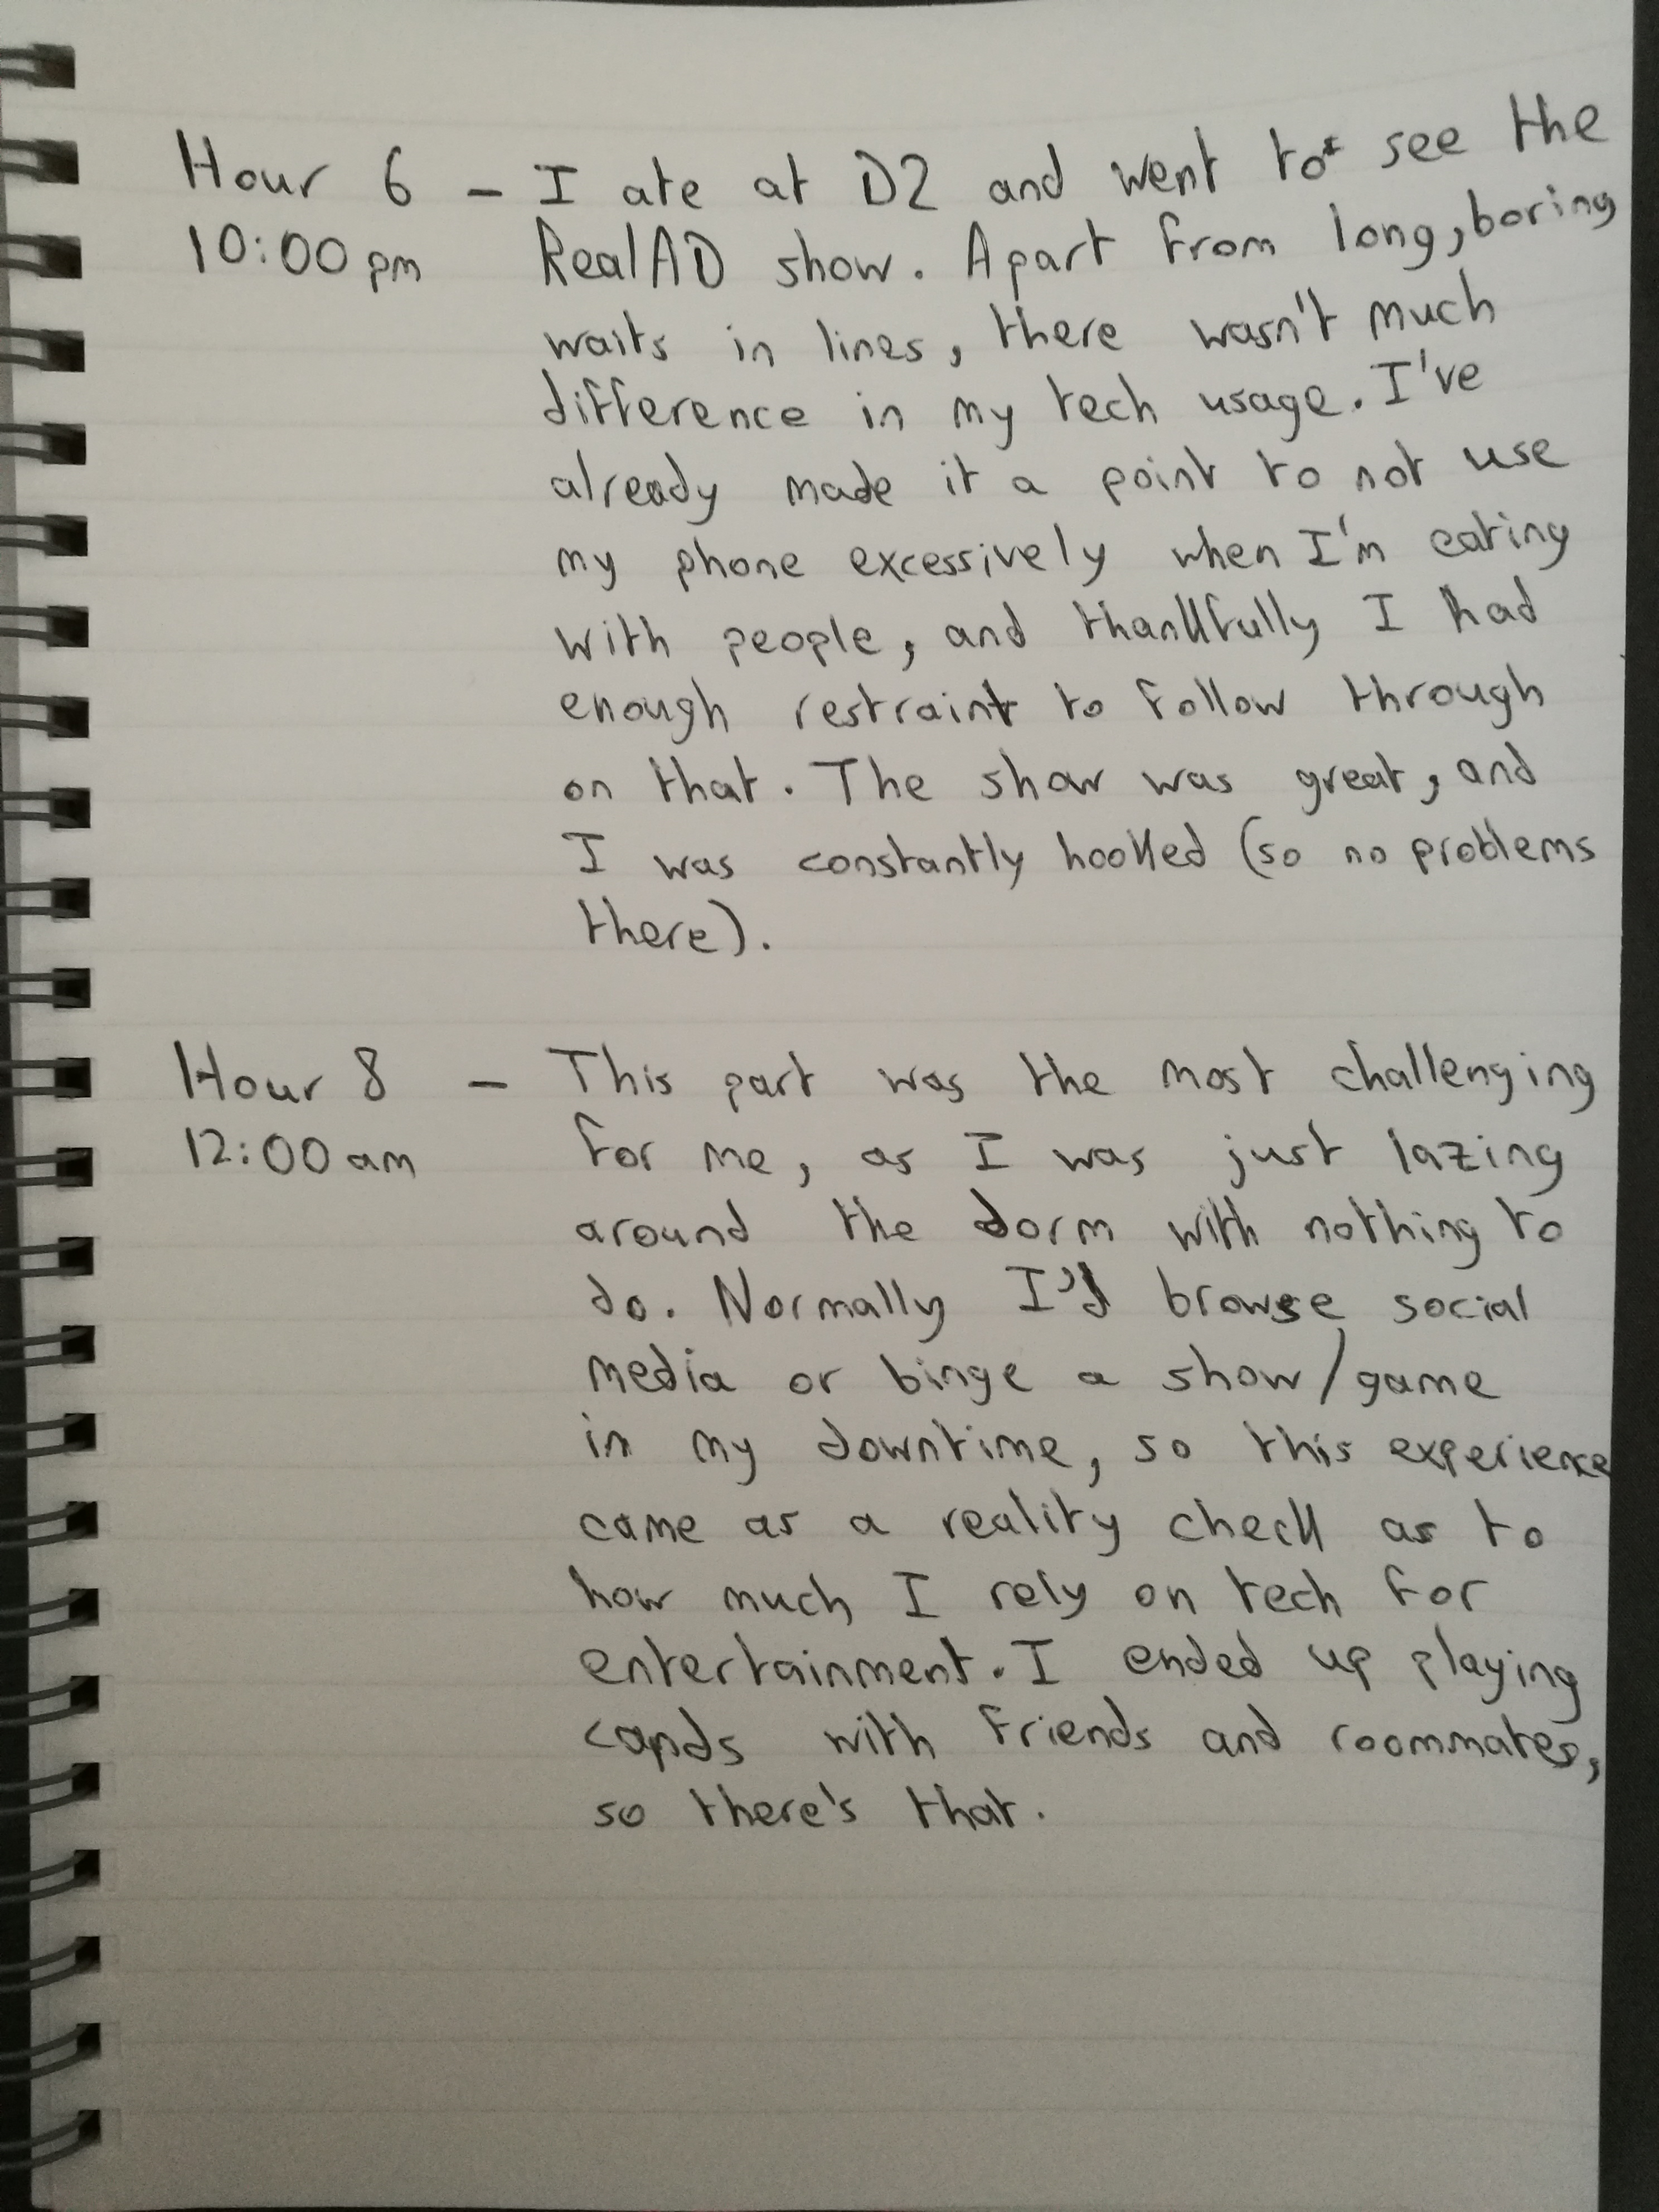 Hour 6 - I ate at D2 and went to see the
10:00 pm RealAD show. Apart from long, boring
waits in lines, there wasn't much
difference in my tech usage. I've
already made it a point to not use
my phone excessively when I'm eating
with people, and thankfully I had
enough restraint to follow through
on that. The show was great, and
I was constantly hooked (so no problems
there).
Hour 8 - This part was the most challenging
12:00 am for me, as I was just lazing
around the dorm with nothing to
do. Normally I'd browse social
media or binge a show/game
in my downtime, so this experience
came as a reality check as to
how much I rely on tech for
entertainment. I ended up playing
cards with friends and roommates,
so there's that.